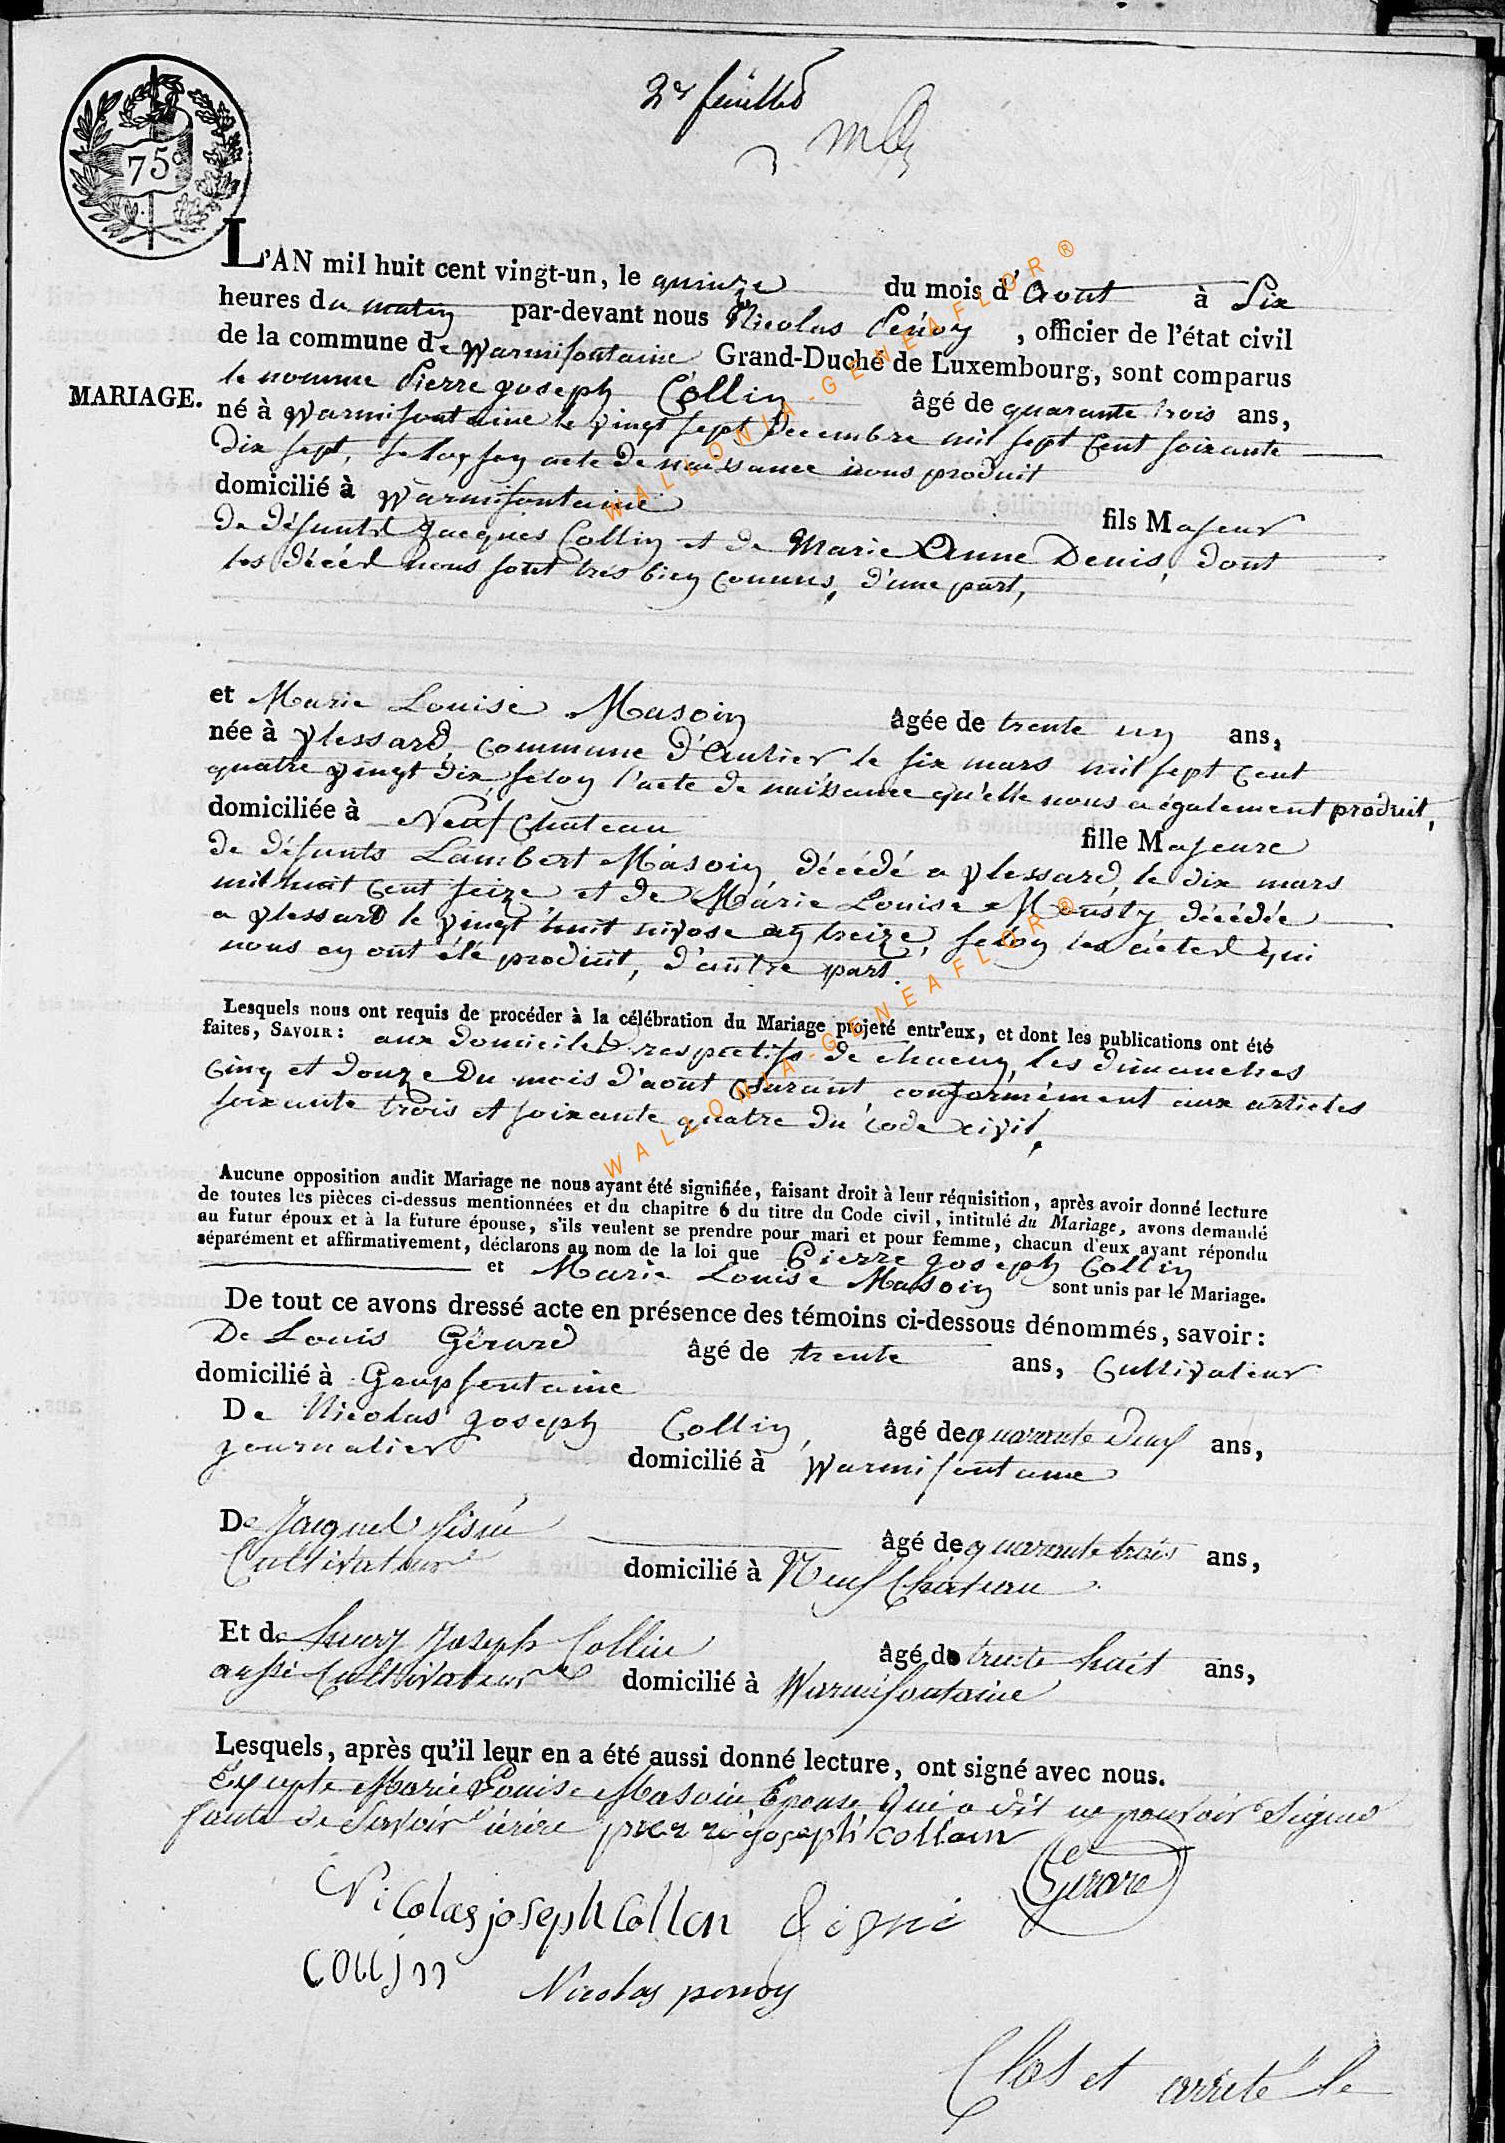 2e feuille
75c
L'AN mil huit cent vingt-un, le quinze du mois d'Aout à Six
heures du matin par-devant nous Nicolas Penoy, officier de l'état civil
de la commune de Warmifontaine Grand-Duché de Luxembourg, sont comparus
le nomme Pierre joseph Collin âgé de quarante trois ans,
MARIAGE.
né à Warmifontaine le vingt sept Decembre mil sept Cent soixante
dix sept, selon son acte de naissance nous produit
domicilié à Warmifontaine fils Majeur
de défunts Jacques Collin et de Marie Anne Denis, dont
les décéd nous sont tres bien connus, d'une part,
et Marie Louise Masoin âgée de trente un ans,
née à Vlessard, commune d'Anlier le six mars mil sept Cent
quatre vingt dix, selon l'acte de naissance qu'elle nous a également produit,
domiciliée à Neufchateau fille Majeure
de défunts Lambert Masoin, décédé a Vlessard, le dix mars
mil huit Cent seize et de Marie Louise Mousty, décédée
a Vlessard le vingt huit nivose an treize, selon les acted qui
nous en ont été produit, d'autre part.
Lesquels nous ont requis de procéder à la célébration du Mariage projeté entr'eux, et dont les publications ont été
faites, SAVOIR: aux domiciles respectifs de chacun, les dimanches
Cinq et douze Du mois d'aout Courant, conformément aux articles
soixante trois et soixante quatre du code civil,
Aucune opposition audit Mariage ne nous ayant été signifiée, faisant droit à leur réquisition, après avoir donné lecture
de toutes les pièces ci-dessus mentionnées et du chapitre 6 du titre du Code civil, intitulé du Mariage, avons demandé
au futur époux et à la future épouse, s'ils veulent se prendre pour mari et pour femme, chacun d'eux ayant répondu
séparément et affirmativement, déclarons au nom de la loi que Pierre joseph Collin
et Marie Louise Masoin sont unis par le Mariage.
De tout ce avons dressé acte en présence des témoins ci-dessous dénommés, savoir:
De Louis Gérard âgé de trente ans, Cultivateur
domicilié à Grapfontaine
De Nicolas joseph Collin, âgé de quarante deux ans,
journalier domicilié à Warmifontaine
De Jacques âgé de quarante trois ans,
Cultivateur domicilié à Neufchateau
Et de henry Joseph Collin âgé de trente huit ans,
aussi Cultivateur domicilié à Warmifontaine
Lesquels, après qu'il leur en a été aussi donné lecture, ont signé avec nous.
Excepte Marie Louise Masoin Epouse qui a dit ne pouvoir Signer
faute de Savoir écrire pierre joseph collin
Gerard
Nicolas joseph Collen
Collin
Nicolas penoy
Clos et arrêté le
WALLONIA-GENEAFLOR®
WALLONIA-GENEAFLOR®